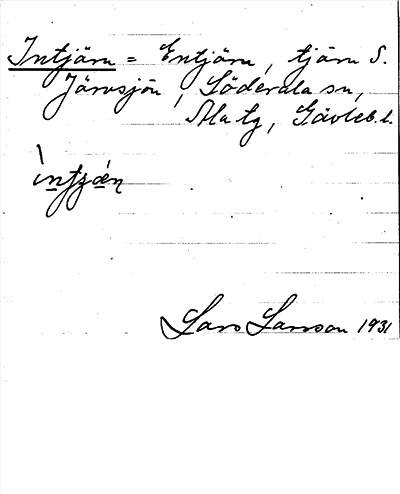 Intjärn = Entjärn, tjärn S.
Järvsjön, Söderala sn,
Ala tg, Gävleb. l.
ìntʒæ̀n
Lars Larsson 1931